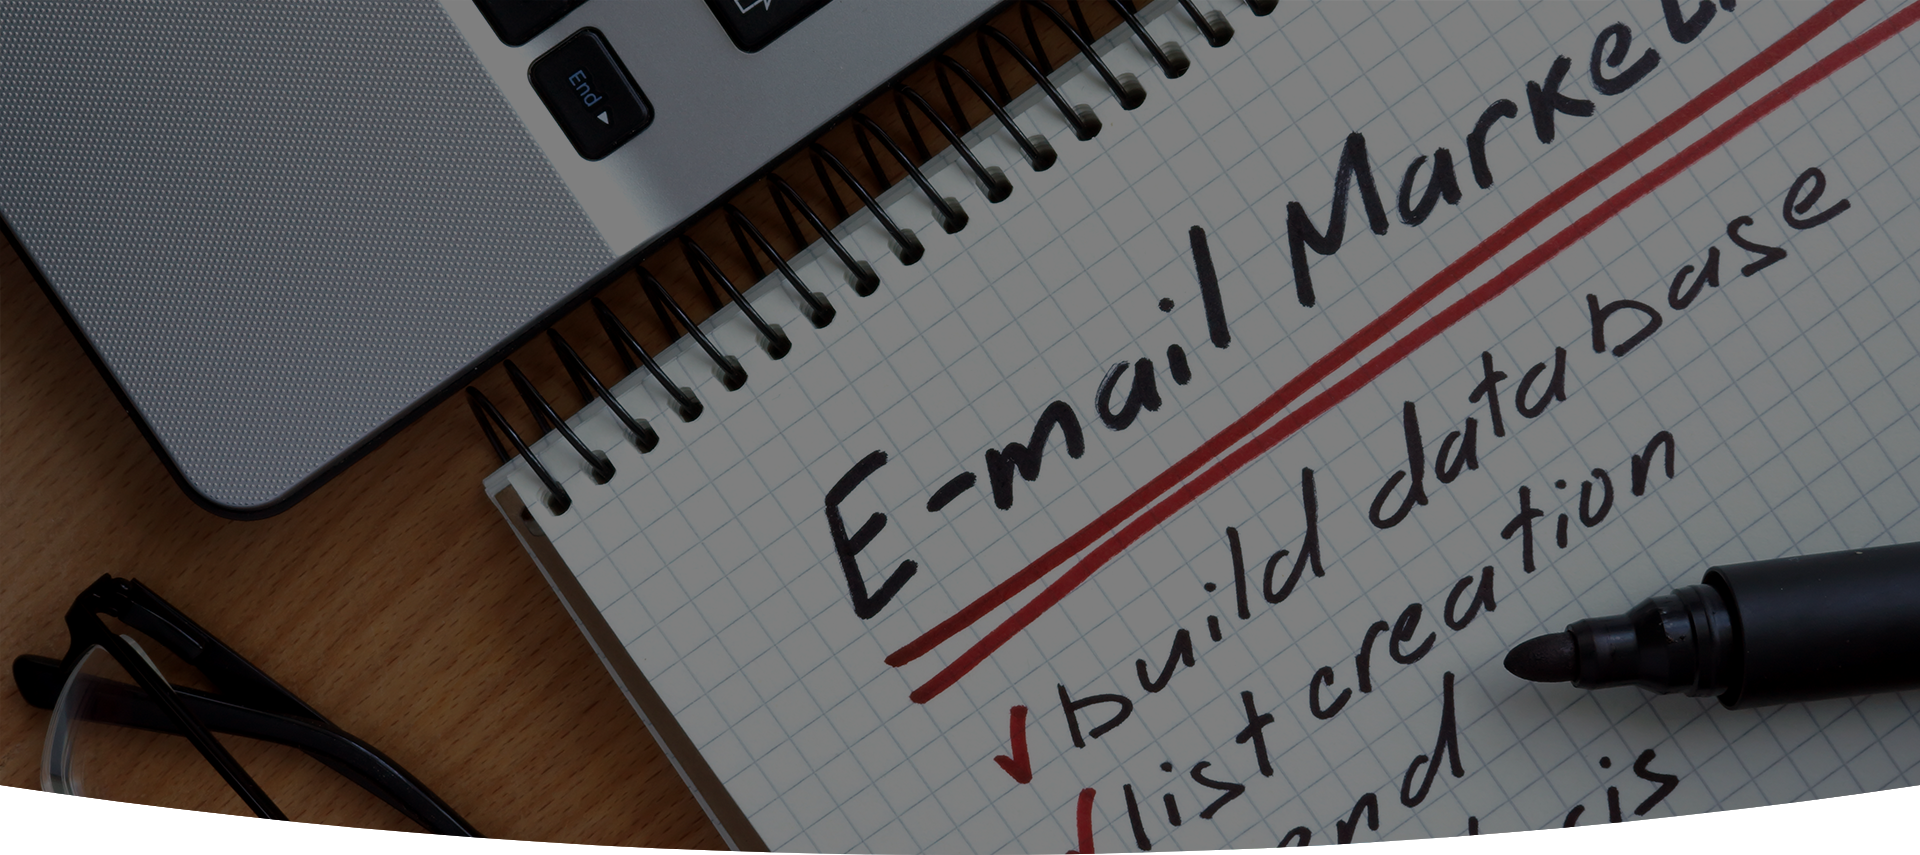 End
E-mail Market
✓ build database
✓ list creation
end